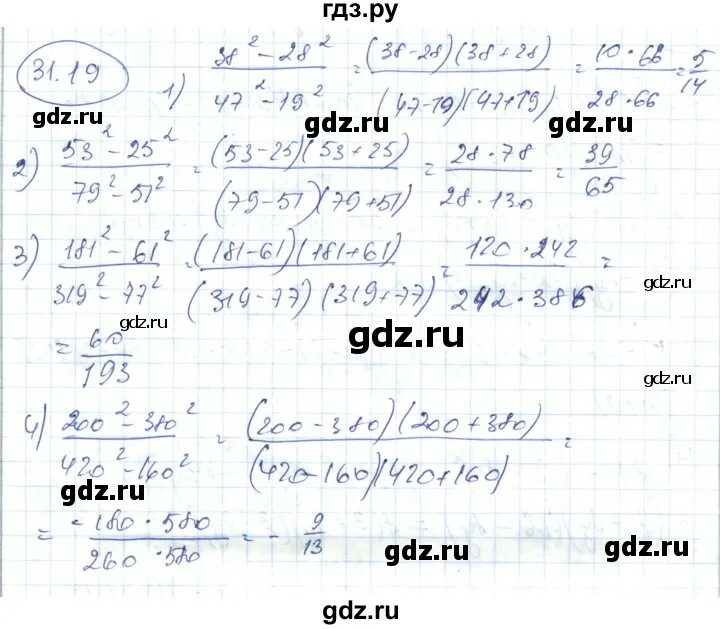 гдз.ру
31.19
1) (38² - 28²)/(47² - 19²) = ((38-28)(38+28))/((47-19)(47+19)) = (10·66)/(28·66) = 5/14
gdz.ru gdz.ru
2) (53² - 25²)/(79² - 51²) = ((53-25)(53+25))/((79-51)(79+51)) = (28·78)/(28·130) = 39/65
gdz.ru
3) (181² - 61²)/(319² - 77²) = ((181-61)(181+61))/((319-77)(319+77)) = (120·242)/(242·386) =
gdz.ru
gdz.ru gdz.ru
= 60/193
gdz.ru
4) (200² - 380²)/(420² - 160²) = ((200-380)(200+380))/((420-160)(420+160)) =
gdz.ru gdz.ru
= (-180·580)/(260·580) = - 9/13
gdz.ru
gdz.ru gdz.ru
gdz.ru